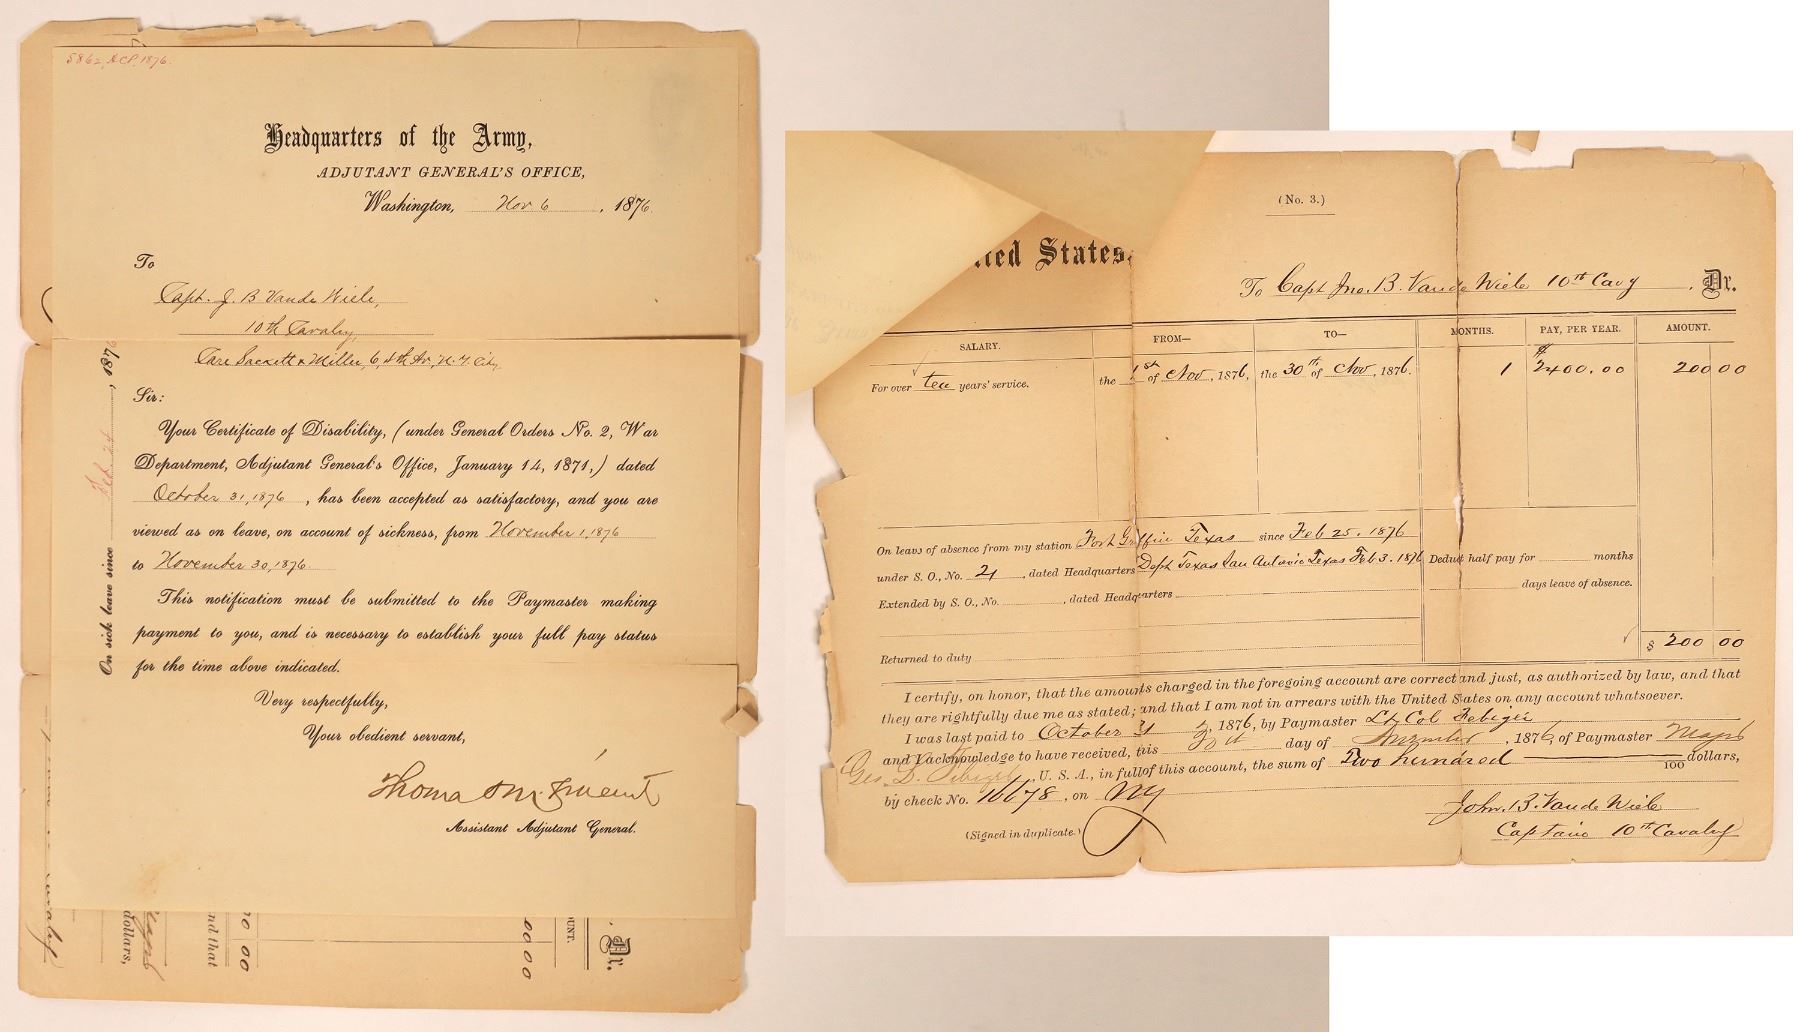 5862, ACP, 1876.
Headquarters of the Army,
ADJUTANT GENERAL'S OFFICE,
Washington, Nov 6, 1876.
To
Capt. J. B. Vande Wiele,
10th Cavalry,
Care Sackett & Miller, 6, 4th Av, N. Y. City,
Sir:
Your Certificate of Disability, (under General Orders No. 2, War
Department, Adjutant General's Office, January 14, 1871,) dated
October 31, 1876, has been accepted as satisfactory, and you are
viewed as on leave, on account of sickness, from November 1, 1876
to November 30, 1876.
This notification must be submitted to the Paymaster making
payment to you, and is necessary to establish your full pay status
for the time above indicated.
Very respectfully,
Your obedient servant,
Thomas M. Vincent
Assistant Adjutant General.
On sick leave since Feb. 24, 1876
dollars,
nd that
00 00
00 00
UNT.
Dr.
(No. 3.)
ited States,
To Capt Jno. B. Vande Wiele 10th Cavy. Dr.
SALARY. FROM— TO— MONTHS. PAY, PER YEAR. AMOUNT.
For over ten years' service. the 1st of Nov, 1876, the 30th of Nov, 1876. 1 $2400.00 200 00
On leave of absence from my station Fort Griffin Texas since Feb 25, 1876
under S. O., No. 21, dated Headquarters Dept Texas San Antonio Texas Feb 3. 1876 Deduct half pay for months
days leave of absence.
Extended by S. O., No. , dated Headquarters
Returned to duty
$ 200 00
I certify, on honor, that the amounts charged in the foregoing account are correct and just, as authorized by law, and that
they are rightfully due me as stated; and that I am not in arrears with the United States on any account whatsoever.
I was last paid to October 31, 1876, by Paymaster Lt Col Febiger
and I acknowledge to have received, this 30th day of November, 1876, of Paymaster Major
Geo. L. Febiger, U. S. A., in full of this account, the sum of Two hundred /100 dollars,
by check No. 16678, on NY
(Signed in duplicate.)
John. B. Vande Wiele
Captain 10th Cavalry